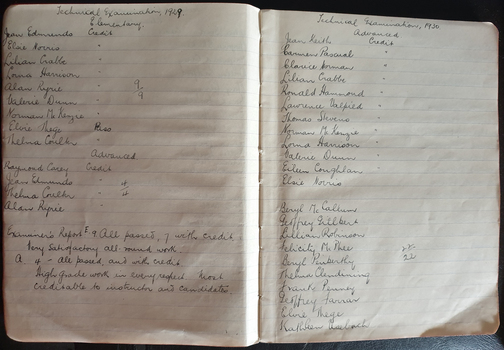 Technical Examination, 1929.
Elementary.
Jean Edmunds Credit
Elsie Norris "
Lilian Crabbe "
Lorna Harrison "
Alan Ripie " 9
Valerie Dunn " 9
Norman McKenzie "
Elvie Thege Pass
Thelma "
Advanced.
Raymond Casey Credit
Jean Edmunds " 4
Thelma " 4
Alan Ripie "
Examiner's Report E. 9 All passed, 7 with credit.
Very satisfactory all round work.
A. 4 - all passed, and with credit.
High grade work in every respect. Most
creditable to instructor and candidates.
Technical Examination, 1930
Advanced
Jean Keith Credit
Carmen Pascoe "
Clarice Norman "
Lilian Crabbe "
Ronald Hammond "
Lawrence "
Thomas Stevens "
Norman McKenzie "
Lorna Harrison "
Valerie Dunn "
Eileen Coughlan "
Elsie Norris "
Beryl McCallum
Geoffrey Gilbert
Lillian Robinson
Felicity McPhee
Beryl Pemberthy
Thelma Clendinning
Frank Penney
Geoffrey Farrar
Elvie Thege
Kathleen